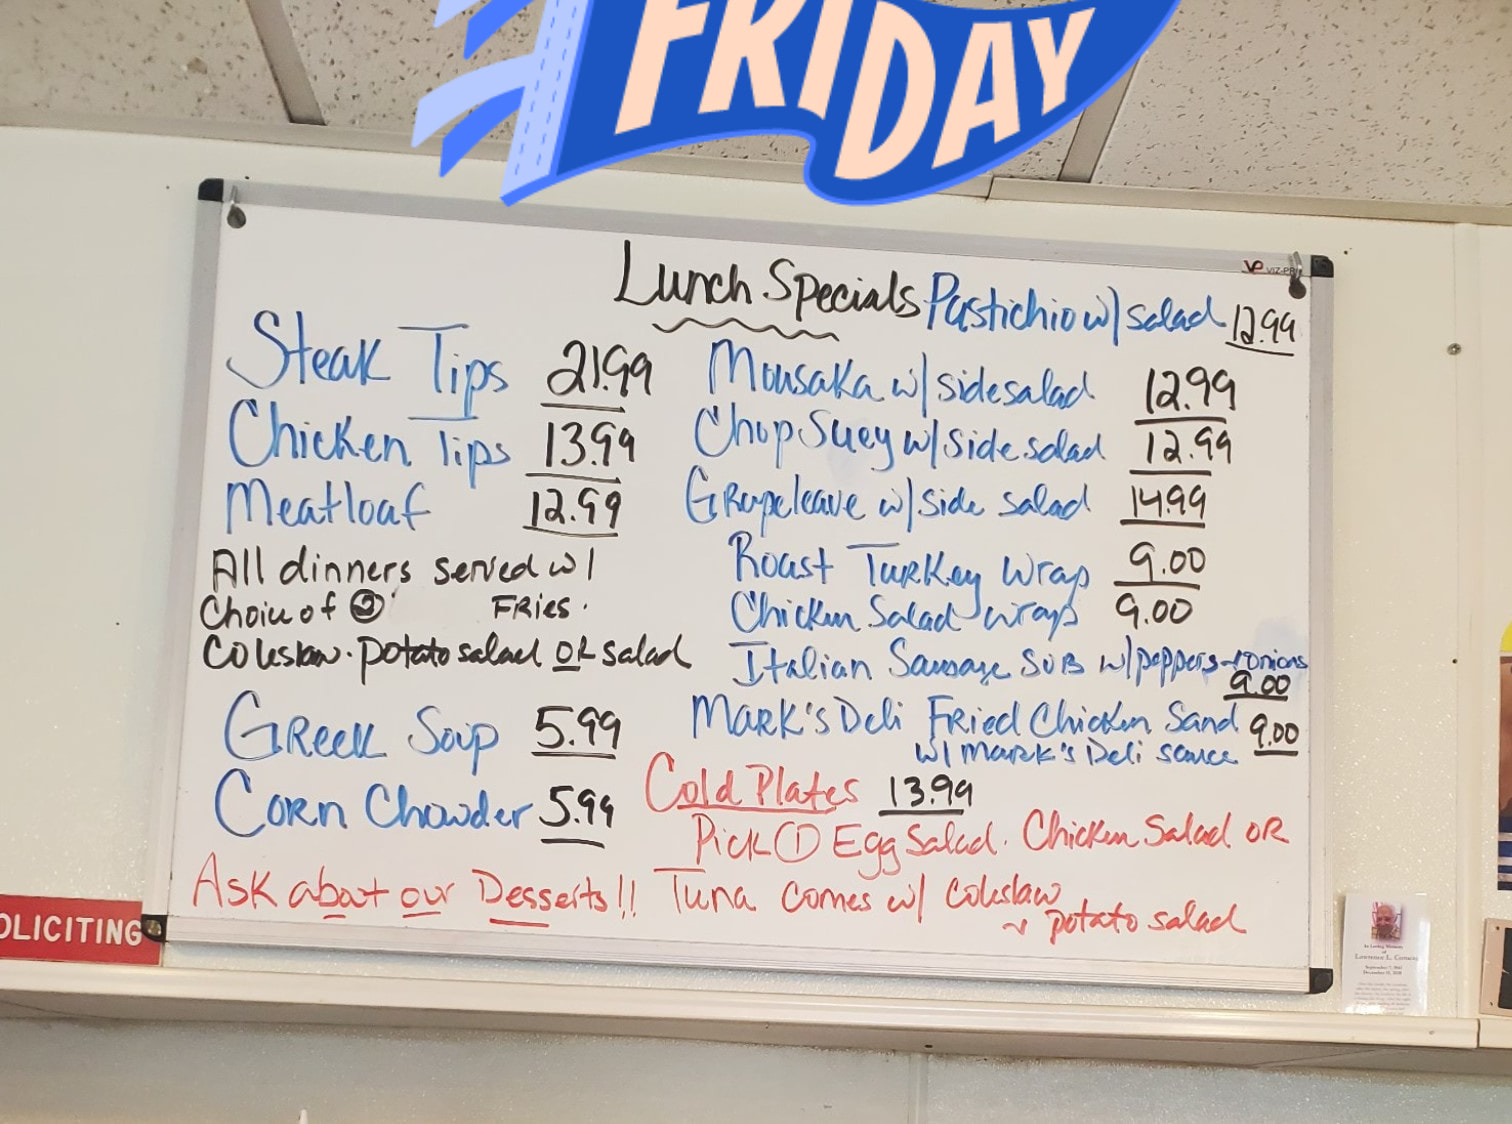 FRIDAY
VP VIZ-PRO
Lunch Specials
Pastichio w/ salad 12.99
Steak Tips 21.99
Chicken Tips 13.99
Meatloaf 12.99
All dinners served w/
Choice of ② FRies.
Coleslaw. potato salad OR salad
GReek Soup 5.99
CoRn Chowder 5.99
Ask about our Desserts!!
Mousaka w/ side salad 12.99
Chop Suey w/ side salad 12.99
GRapeleave w/ side salad 14.99
Roast TuRKey Wrap 9.00
Chicken Salad wrap 9.00
Italian Sausage SUB w/ peppers + onions
9.00
MaRK's Deli FRied Chicken Sand 9.00
w/ MaRK's Deli sauce
Cold Plates 13.99
Pick ① Egg Salad. Chicken Salad OR
Tuna comes w/ coleslaw
+ potato salad
OLICITING
In Loving Memory
of
Lawrence L.